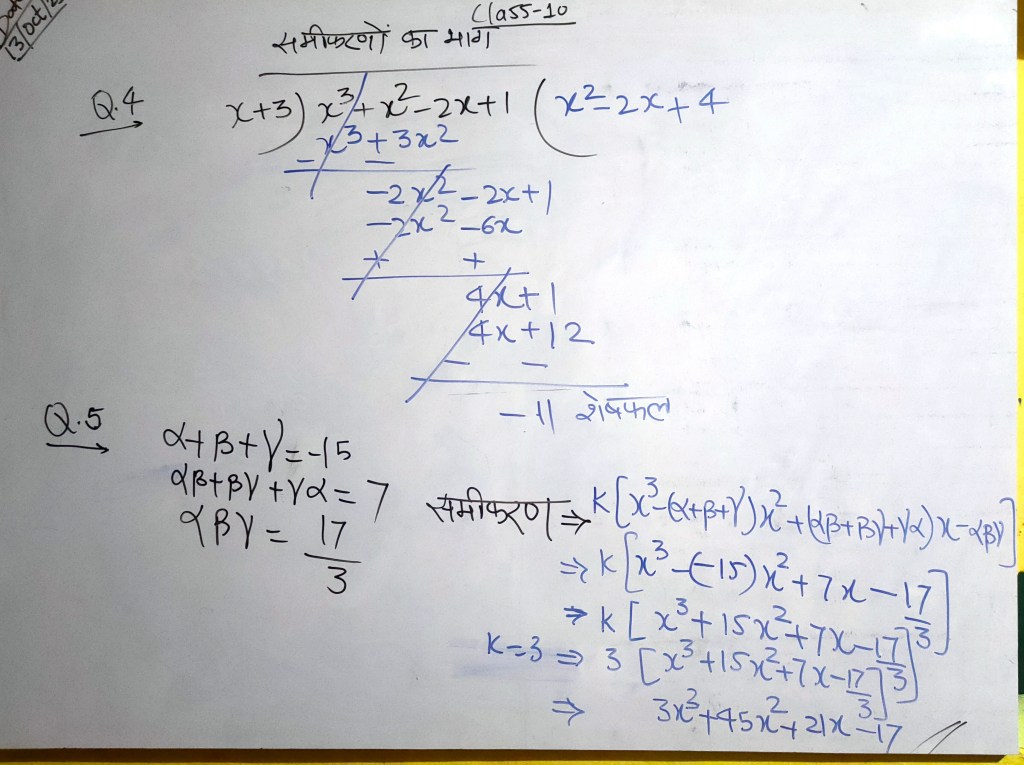 13/Oct/2
Class-10
समीकरणों का भाग
Q.4 x+3) x³+x²-2x+1 (x²-2x+4
x³+3x²
- -
-2x²-2x+1
-2x²-6x
+ +
4x+1
4x+12
- -
-11 शेषफल
Q.5
α+β+γ=-15
αβ+βγ+γα=7
αβγ=17/3
समीकरण ⇒ K[x³-(α+β+γ)x²+(αβ+βγ+γα)x-αβγ]
⇒ K[x³-(-15)x²+7x-17/3]
⇒ K[x³+15x²+7x-17/3]
K=3 ⇒ 3[x³+15x²+7x-17/3]
⇒ 3x³+45x²+21x-17